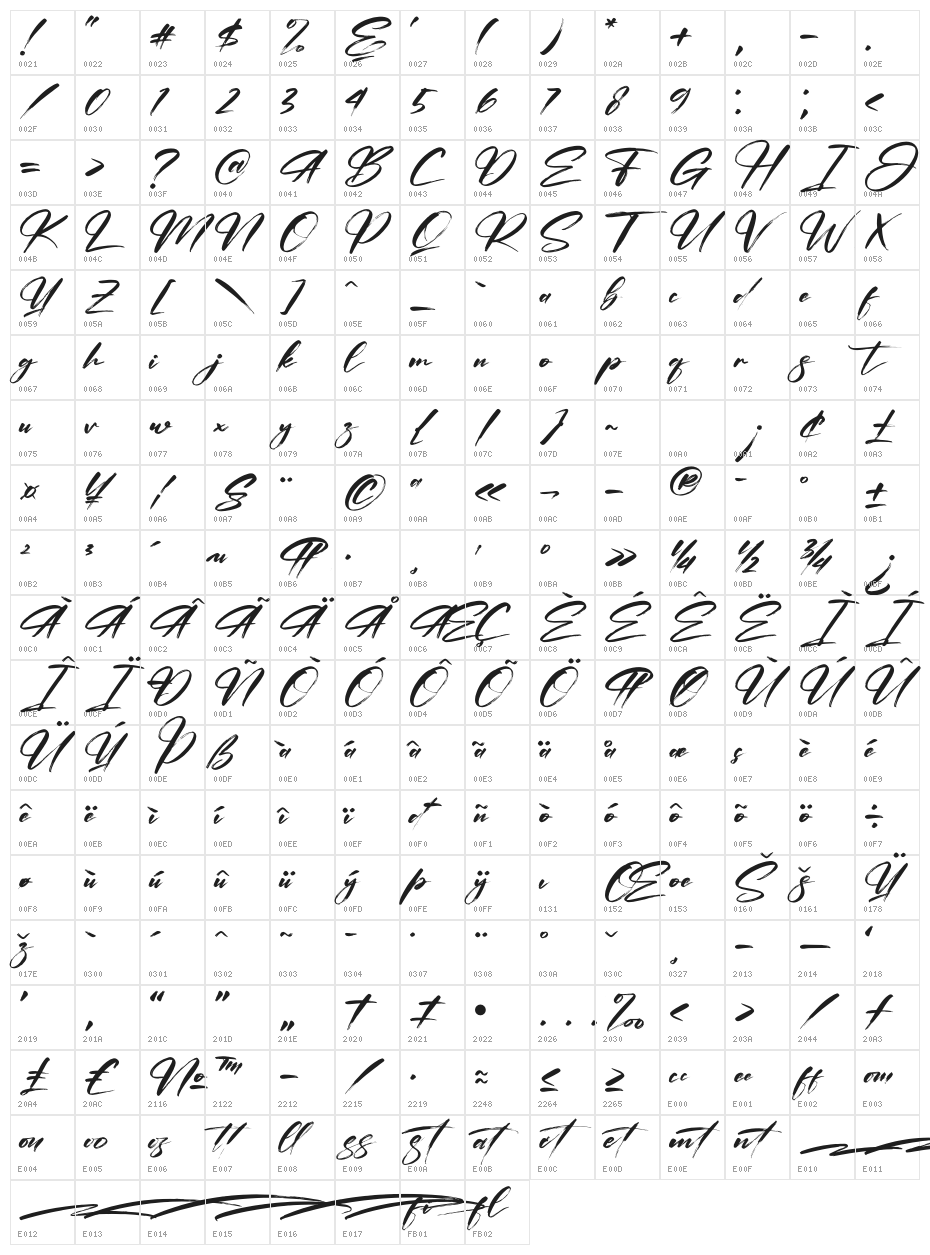 ! " # $ % & ' ( ) * + , - .
0021 0022 0023 0024 0025 0026 0027 0028 0029 002A 002B 002C 002D 002E
/ 0 1 2 3 4 5 6 7 8 9 : ; <
002F 0030 0031 0032 0033 0034 0035 0036 0037 0038 0039 003A 003B 003C
= > ? @ A B C D E F G H I J
003D 003E 003F 0040 0041 0042 0043 0044 0045 0046 0047 0048 0049 004A
K L M N O P Q R S T U V W X
004B 004C 004D 004E 004F 0050 0051 0052 0053 0054 0055 0056 0057 0058
Y Z [ \ ] ^ _ ` a b c d e f
0059 005A 005B 005C 005D 005E 005F 0060 0061 0062 0063 0064 0065 0066
g h i j k l m n o p q r s t
0067 0068 0069 006A 006B 006C 006D 006E 006F 0070 0071 0072 0073 0074
u v w x y z { | } ~ ¡ ¢ £
0075 0076 0077 0078 0079 007A 007B 007C 007D 007E 00A0 00A1 00A2 00A3
¤ ¥ ¦ § ¨ © ª « ¬ - ® ¯ ° ±
00A4 00A5 00A6 00A7 00A8 00A9 00AA 00AB 00AC 00AD 00AE 00AF 00B0 00B1
² ³ ´ µ ¶ · ¸ ¹ º » ¼ ½ ¾ ¿
00B2 00B3 00B4 00B5 00B6 00B7 00B8 00B9 00BA 00BB 00BC 00BD 00BE 00BF
À Á Â Ã Ä Å Æ Ç È É Ê Ë Ì Í
00C0 00C1 00C2 00C3 00C4 00C5 00C6 00C7 00C8 00C9 00CA 00CB 00CC 00CD
Î Ï Ð Ñ Ò Ó Ô Õ Ö ¶ Ø Ù Ú Û
00CE 00CF 00D0 00D1 00D2 00D3 00D4 00D5 00D6 00D7 00D8 00D9 00DA 00DB
Ü Ý Þ ß à á â ã ä å æ ç è é
00DC 00DD 00DE 00DF 00E0 00E1 00E2 00E3 00E4 00E5 00E6 00E7 00E8 00E9
ê ë ì í î ï ð ñ ò ó ô õ ö ÷
00EA 00EB 00EC 00ED 00EE 00EF 00F0 00F1 00F2 00F3 00F4 00F5 00F6 00F7
ø ù ú û ü ý þ ÿ ı Œ œ Š š Ÿ
00F8 00F9 00FA 00FB 00FC 00FD 00FE 00FF 0131 0152 0153 0160 0161 0178
ž ` ´ ^ ~ ¯ ˙ ¨ ˚ ˇ ¸ – — ‘
017E 0300 0301 0302 0303 0304 0307 0308 030A 030C 0327 2013 2014 2018
’ ‚ “ ” „ † ‡ • … ‰ ‹ › ⁄ ₣
2019 201A 201C 201D 201E 2020 2021 2022 2026 2030 2039 203A 2044 20A3
₤ € № ™ − ∕ ∙ ≈ ≤ ≥ cc ee ff om
20A4 20AC 2116 2122 2212 2215 2219 2248 2264 2265 E000 E001 E002 E003
on oo os tt ll ss st at ct et mt nt
E004 E005 E006 E007 E008 E009 E00A E00B E00C E00D E00E E00F E010 E011
fi fl
E012 E013 E014 E015 E016 E017 FB01 FB02